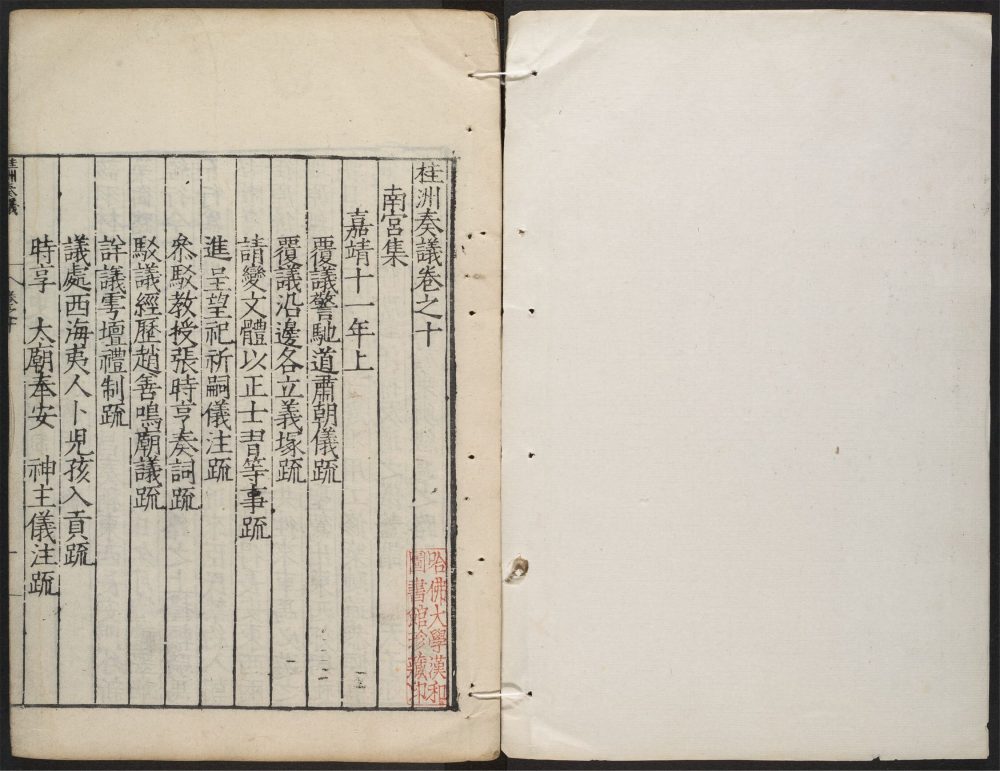 桂洲奏議卷之十
南宮集
嘉靖十一年上
覆議警馳道肅朝儀疏
覆議沿邊各立義塚疏
請變文體以正士習等事疏
進呈望祀祈嗣儀注疏
叅駁教授張時亨奏詞疏
駁議經歷趙善鳴廟議疏
詳議雩壇禮制疏
議處西海夷人卜兒孩入貢疏
時享 太廟奉安 神主儀注疏
桂洲奏議
哈佛大學漢和
圖書館珍藏印